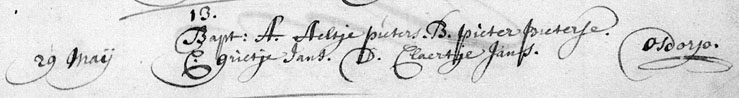 13.
Bapt: A. Aeltje pieters. B. pieter pieterse.
29 Maij C. grietje Jans. D. Claertje Jans. Osdorp.